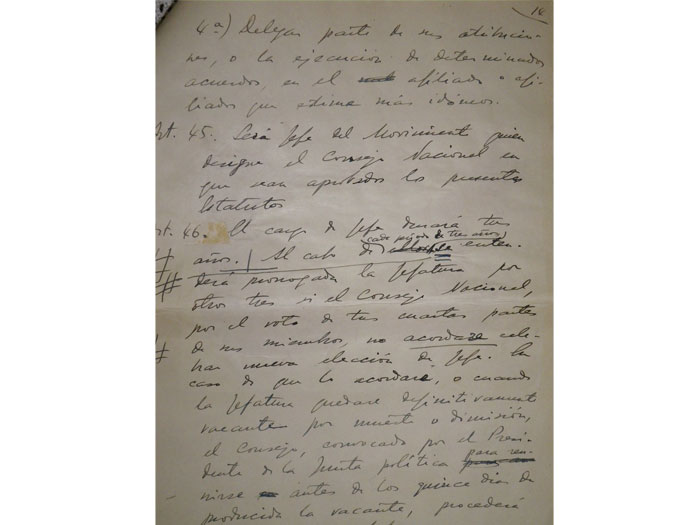 16
4ª) Delegar parte de sus atribucio-
nes, o la ejecución de determinados
acuerdos, en el afiliado o afi-
liados que estime más idóneos.
Art. 45. Será Jefe del Movimiento quien
designe el Consejo Nacional en
que sean aprobados los presentes
Estatutos
Art. 46. El cargo de Jefe durará tres
años. Al cabo de cada periodo de tres años, enten-
derá prorrogada la Jefatura por
otros tres si el Consejo Nacional,
por el voto de tres cuartas partes
de sus miembros, no acordase cele-
brar nueva elección de Jefe. En
caso de que lo acordare, o cuando
la Jefatura quedare definitivamente
vacante por muerte o dimisión,
el Consejo, convocado por el Presi-
dente de la Junta política para reu-
nirse antes de los quince días de
producida la vacante, procederá